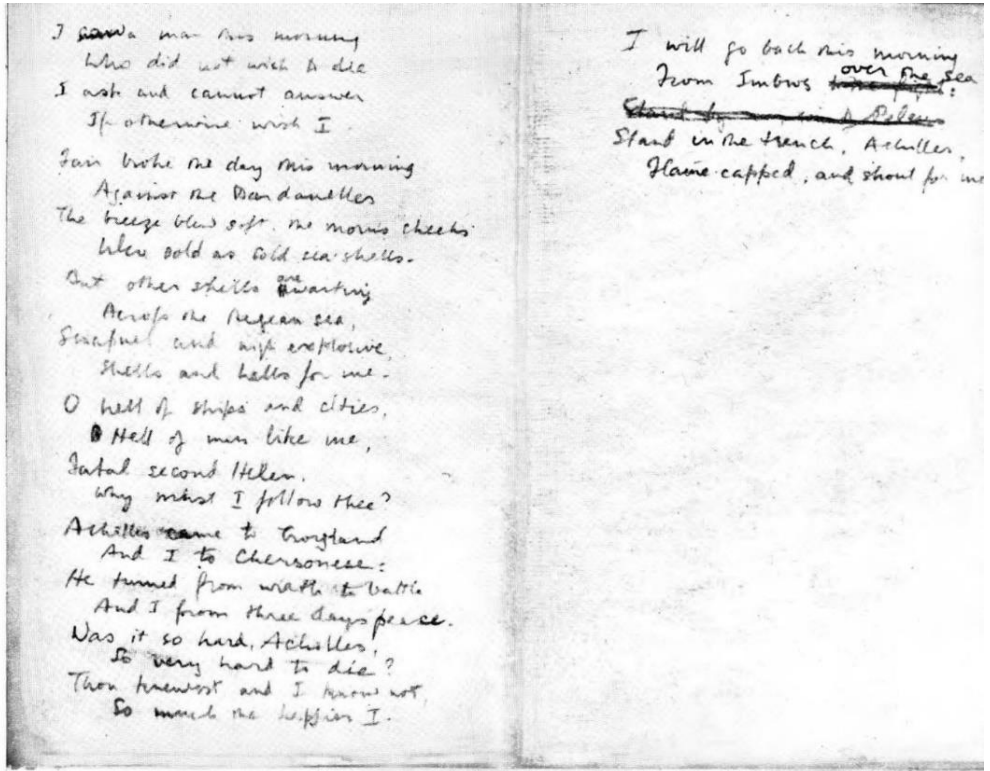 I saw a man this morning
Who did not wish to die
I ask and cannot answer
If otherwise wish I.
Fair broke the day this morning
Against the Dardanelles
The breeze blew soft, the morn's cheeks
Were cold as cold sea-shells.
But other shells are waiting
Across the Aegean sea,
Shrapnel and high explosive,
Shells and hells for me.
O hell of ships and cities,
Hell of men like me,
Fatal second Helen,
Why must I follow thee?
Achilles came to Troyland
And I to Chersonese:
He turned from wrath to battle
And I from three days peace.
Was it so hard, Achilles,
So very hard to die?
Thou knewest and I know not,
So much the happier I.
I will go back this morning
From Imbros over the sea
Stand in the trench, Achilles,
Flame-capped, and shout for me